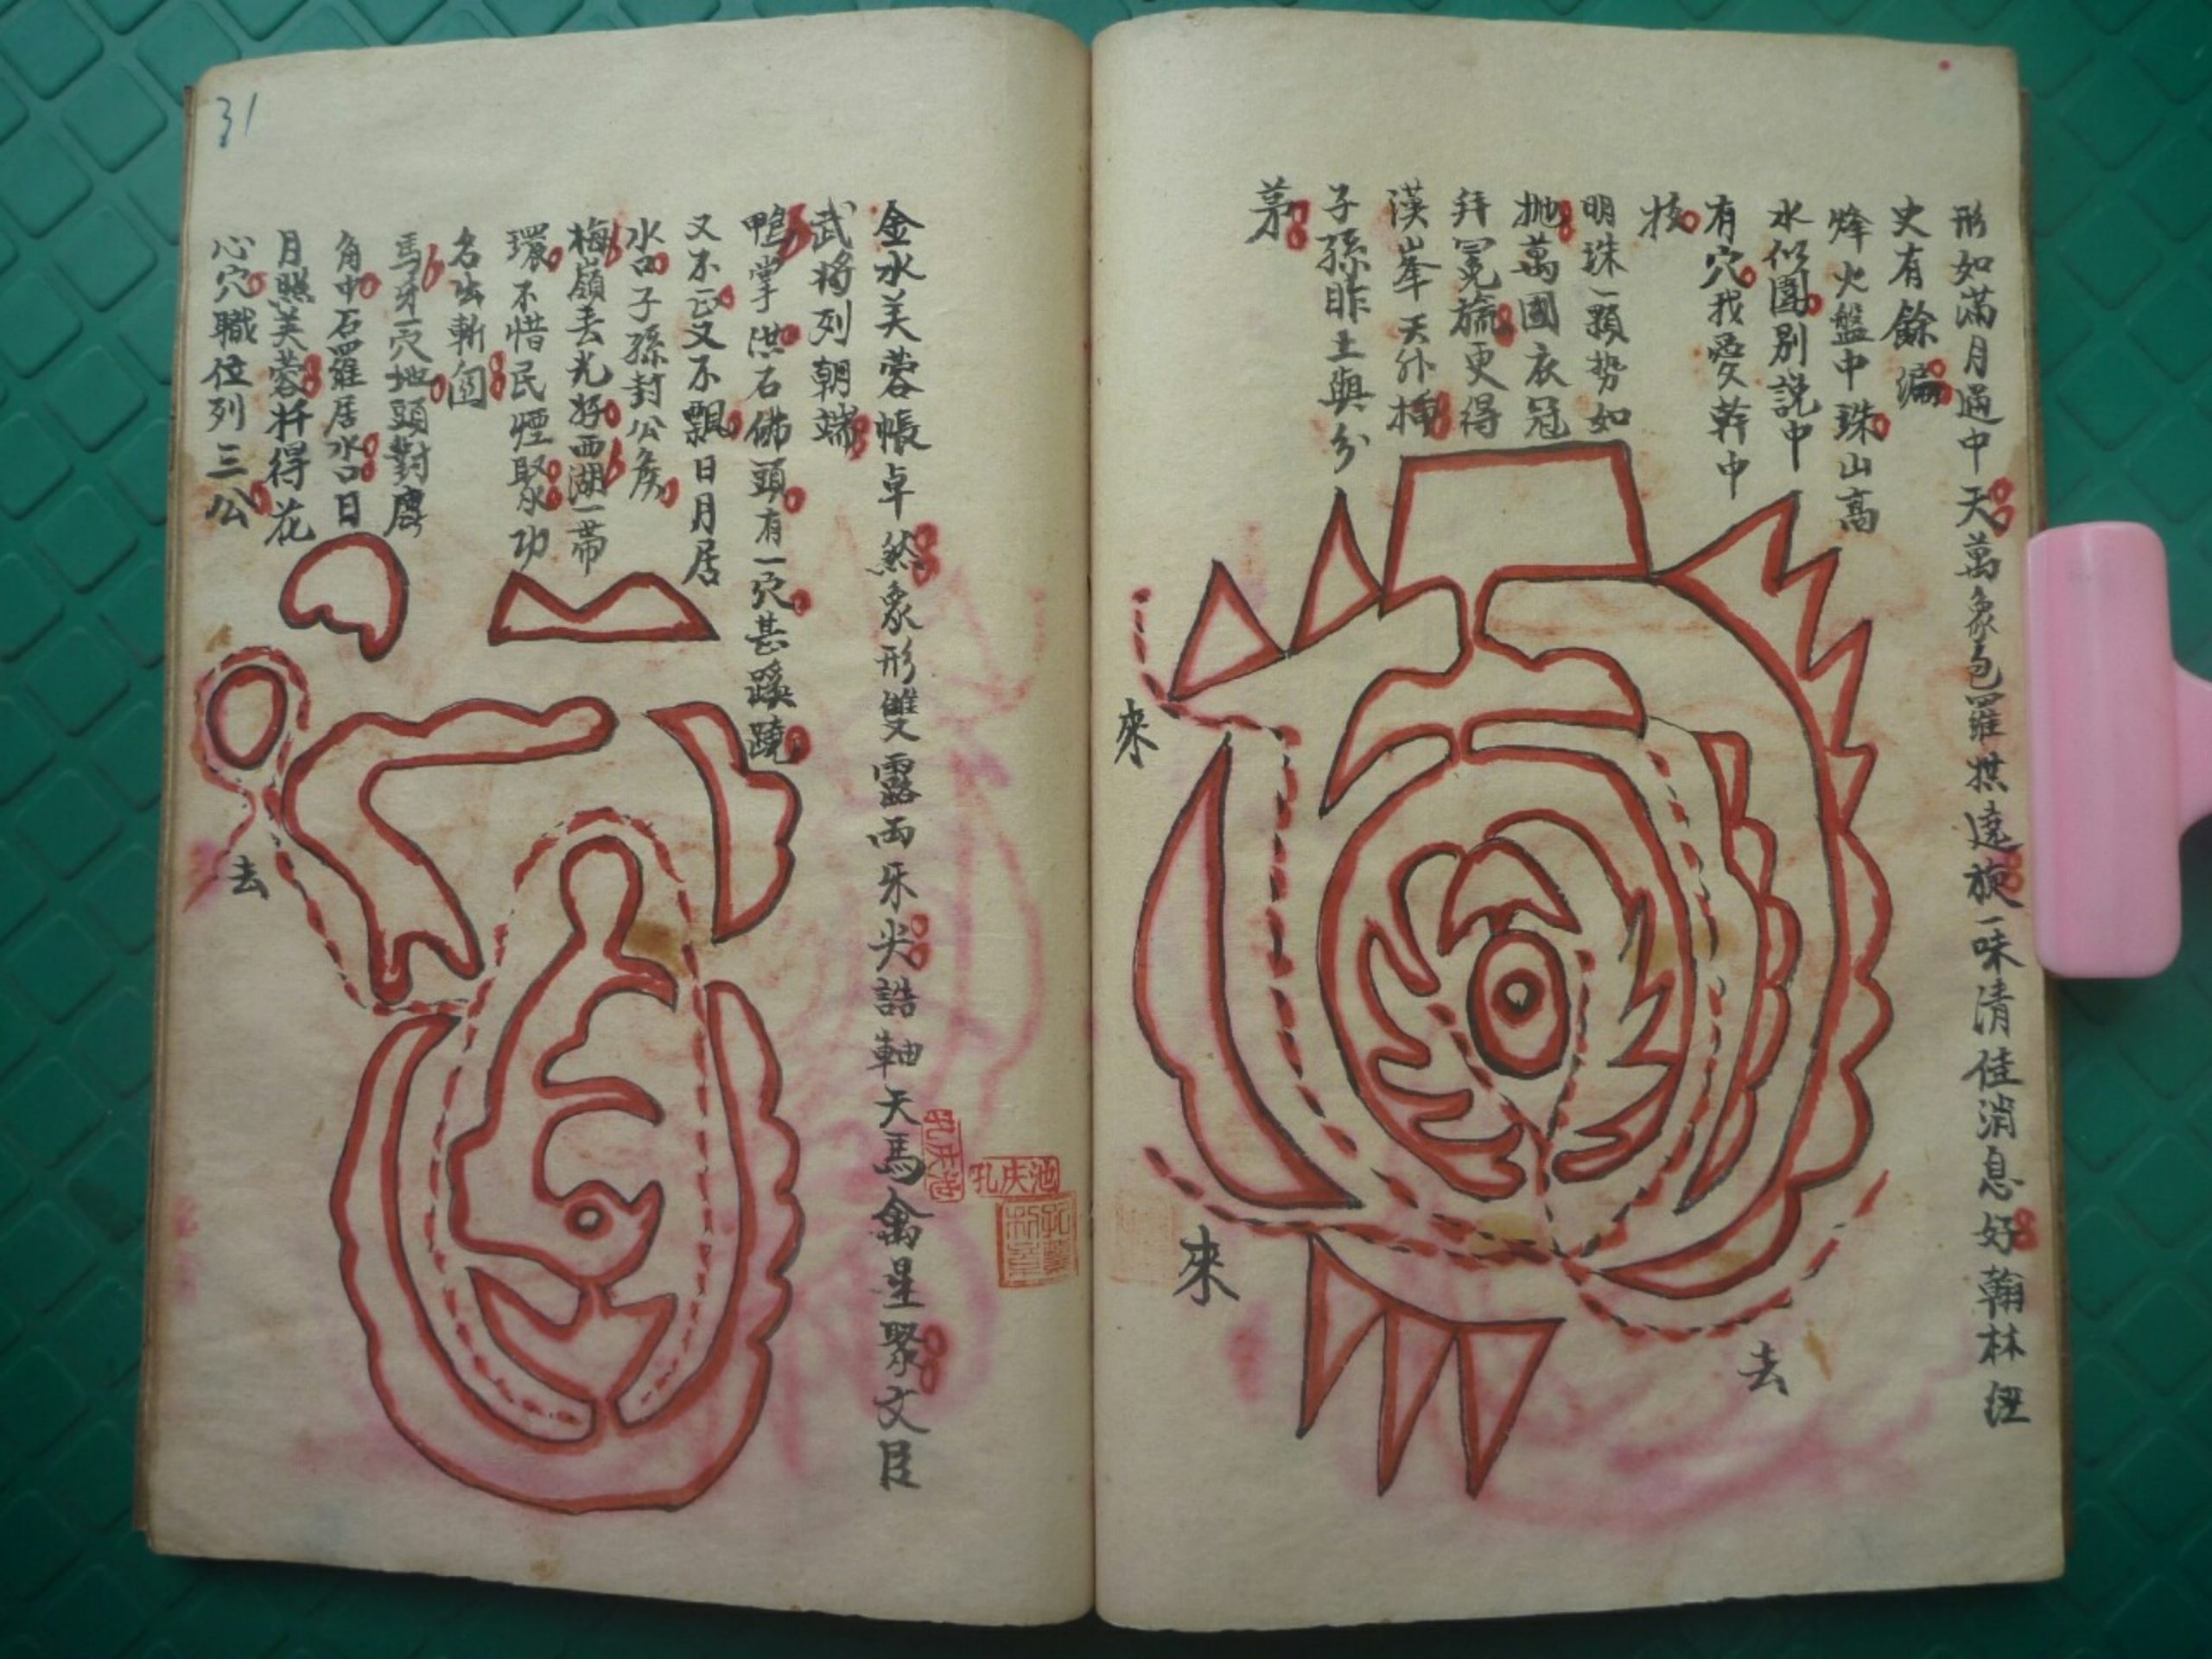 形如滿月過中天萬象包羅拱遶旋一味清佳消息好翰林經
史有餘編
烽火盤中珠山高
水似圍別説中
有穴我愛幹中
枝
明珠一顆勢如
拋萬國衣冠
拜冕旒更得
漢峯天外插
子孫昨土與分
茅
來
來
去
金水芙蓉帳卓然象形雙露兩牙尖誥軸天馬禽星聚文臣
武將列朝端
鴨掌洪石佛頭有一穴甚蹊蹺
又不正又不飄日月居
水口子孫封公侯
梅嶺去光好西湖一帶
環不惜民煙聚水功
名出斬
馬牙一穴地頭對鷹
角中石羅居水口日
月照芙蓉扦得花
心穴職位列三公
去
31
池庆孔